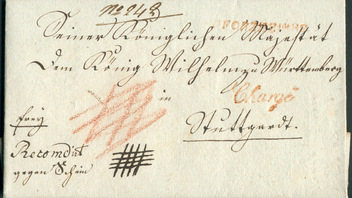 No 248
Seiner Königlichen Majestät
Dem König Wilhelm zu Württemberg
in
Chargé
Stuttgardt.
frey
Recomdirt
gegen Schein